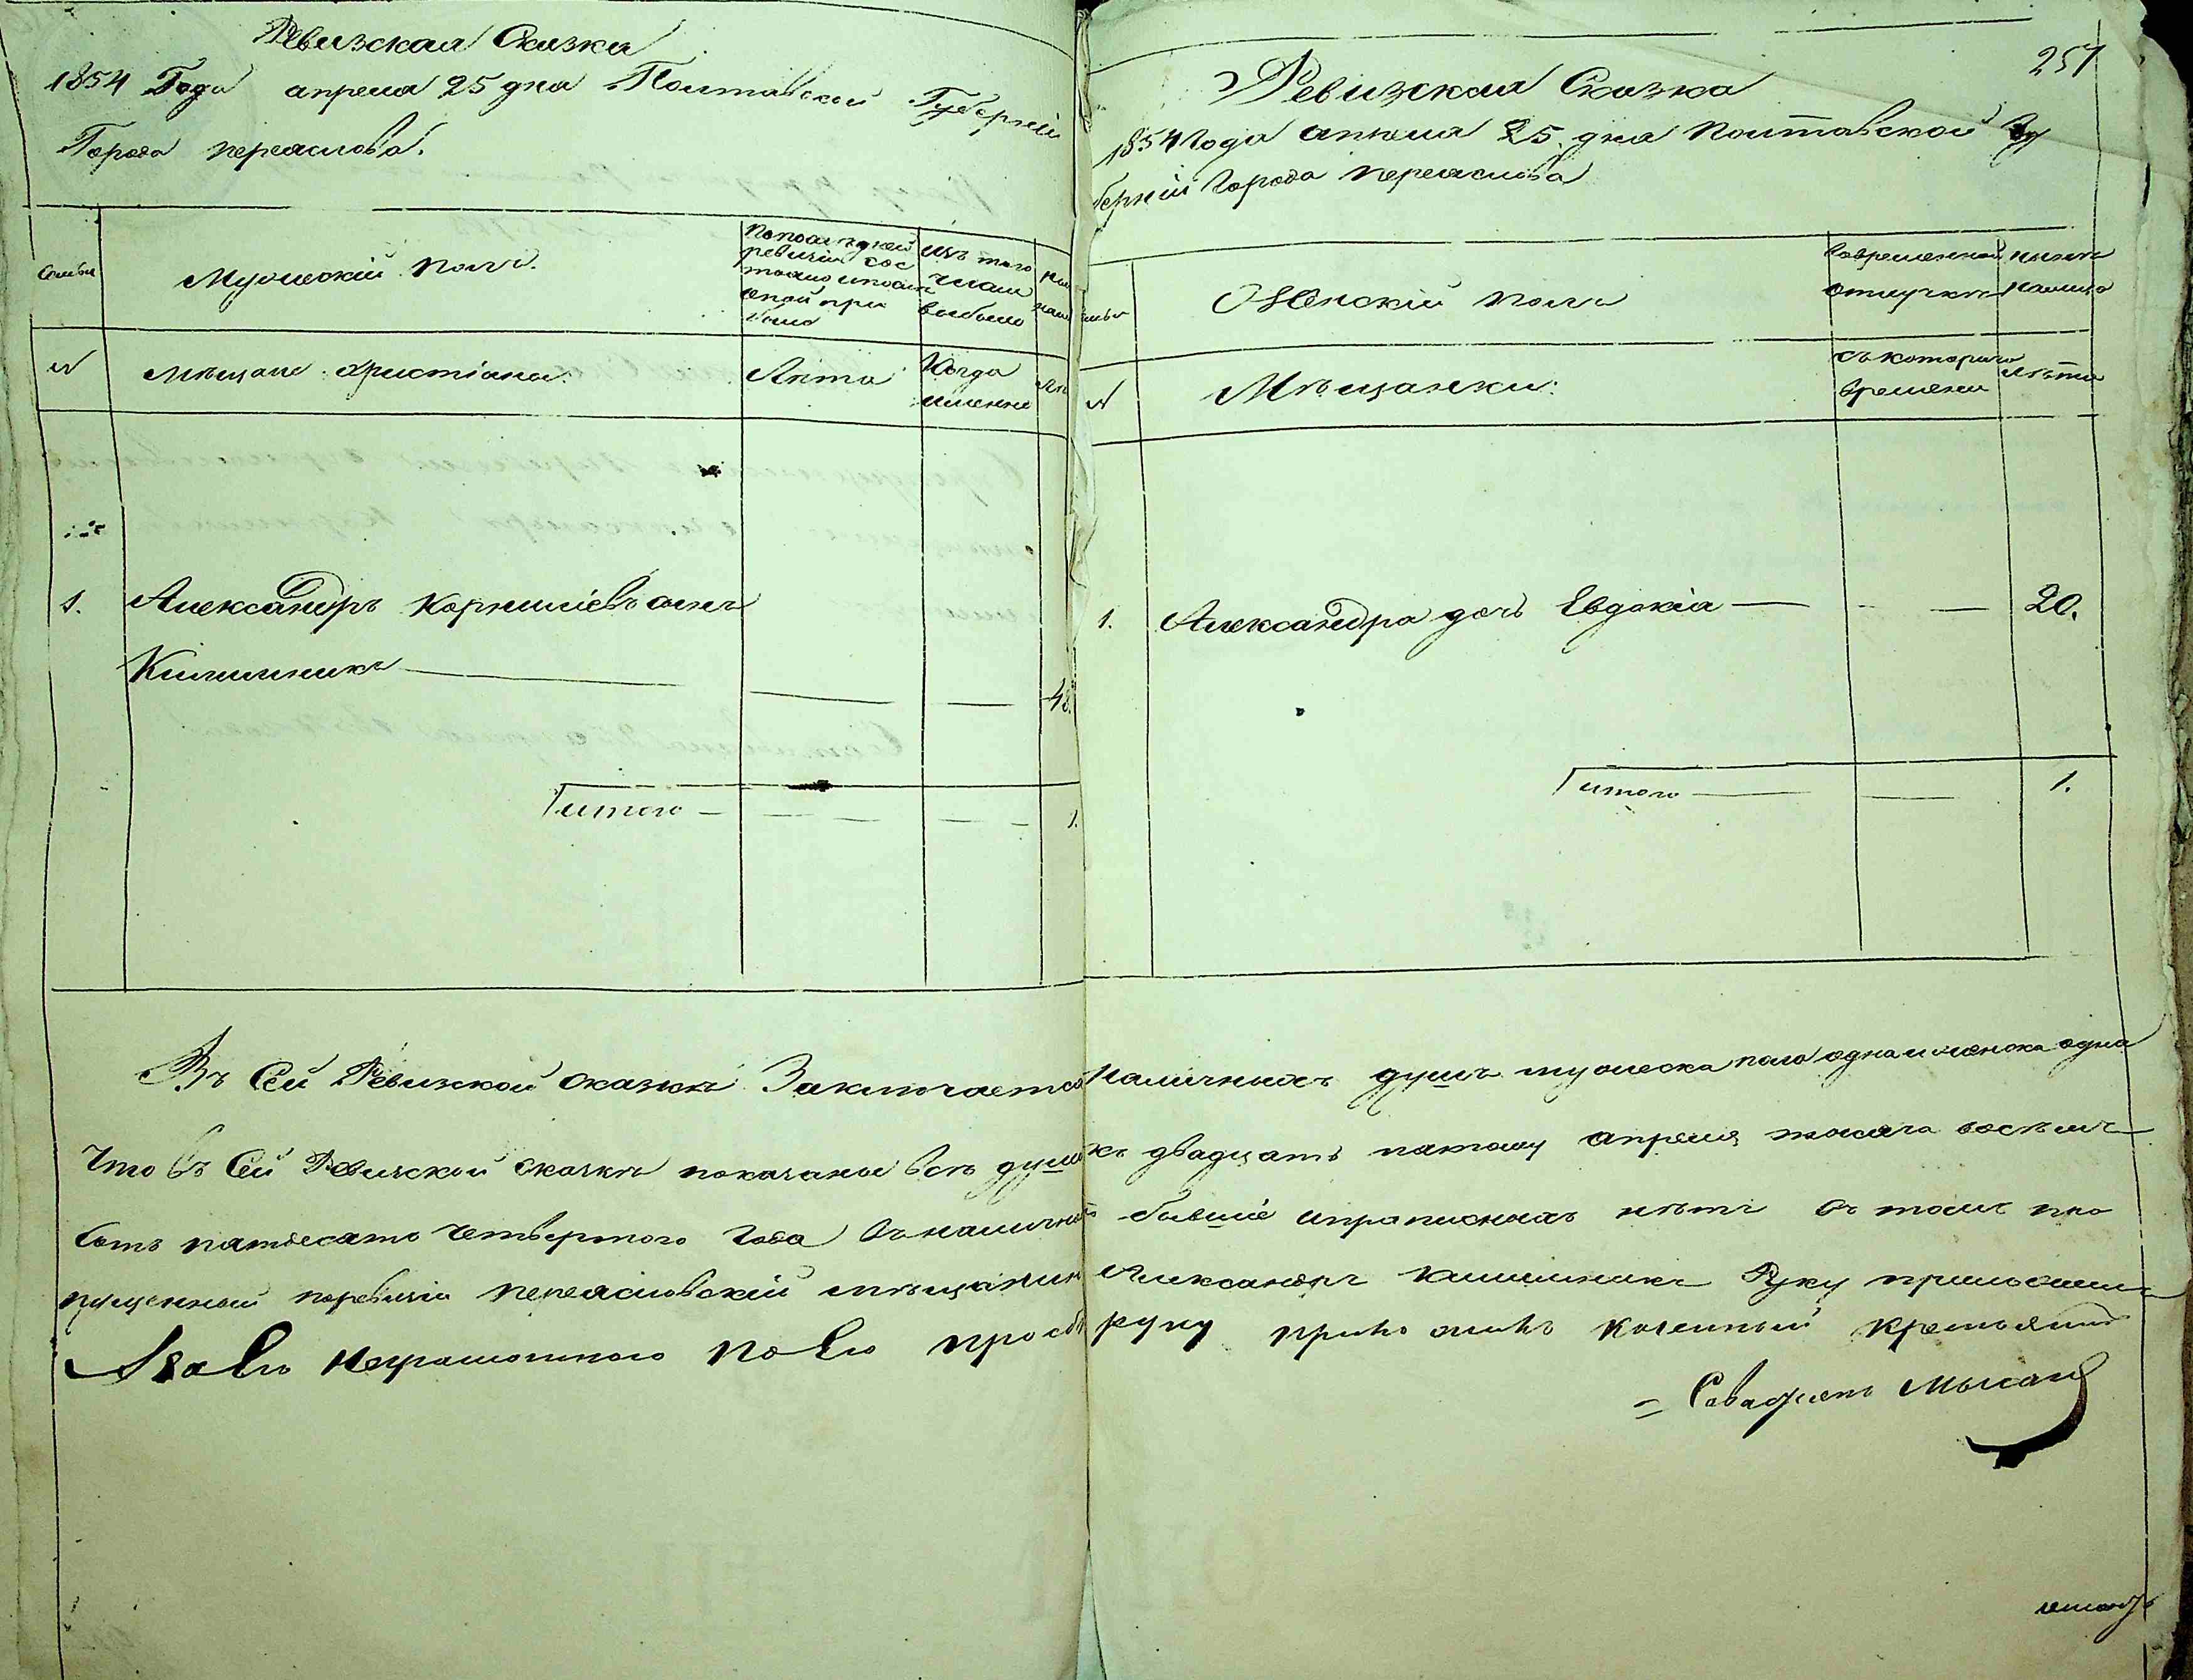 Ревизская Сказка
1854 Года апреля 25 дня Полтавской Губерніи
Города переяслова.
Семьи
Мужескій полъ.
По последней ревизіи сос тояло и после оной при было
изъ того числа выбыло
№
Мещане христіане.
Лета
Когда именно
1.
Александръ Корниліевъ сынъ
Килимникъ
48.
Итого
1.
257
Ревизская Сказка
1854 Года апреля 25 дня Полтавской Гу
берніи Города переяслова
Женскій полъ
Вовременной отлучке
ныне налицо
№
Мѣщанки:
съ котораго времени
лѣта
1. Александра дочь Евдокія 20.
Итого 1.
Въ Сей Ревизской сказкѣ Заключается наличныхъ душъ мужеска пола одна и женска одна
Что въ Сей Ревизской сказкѣ показаны всѣ души къ двадцать пятому апреля тысяча восемь
сотъ пятдесято четвертого года въ наличной бывшіе и прописныхъ нѣтъ въ томъ про
пущенный поревизіи переясловскій мѣщанинъ Александръ Килимникъ Руку приложилъ
А за Его неграмотного по Его просбѣ руку приложилъ казенный крестьянинъ